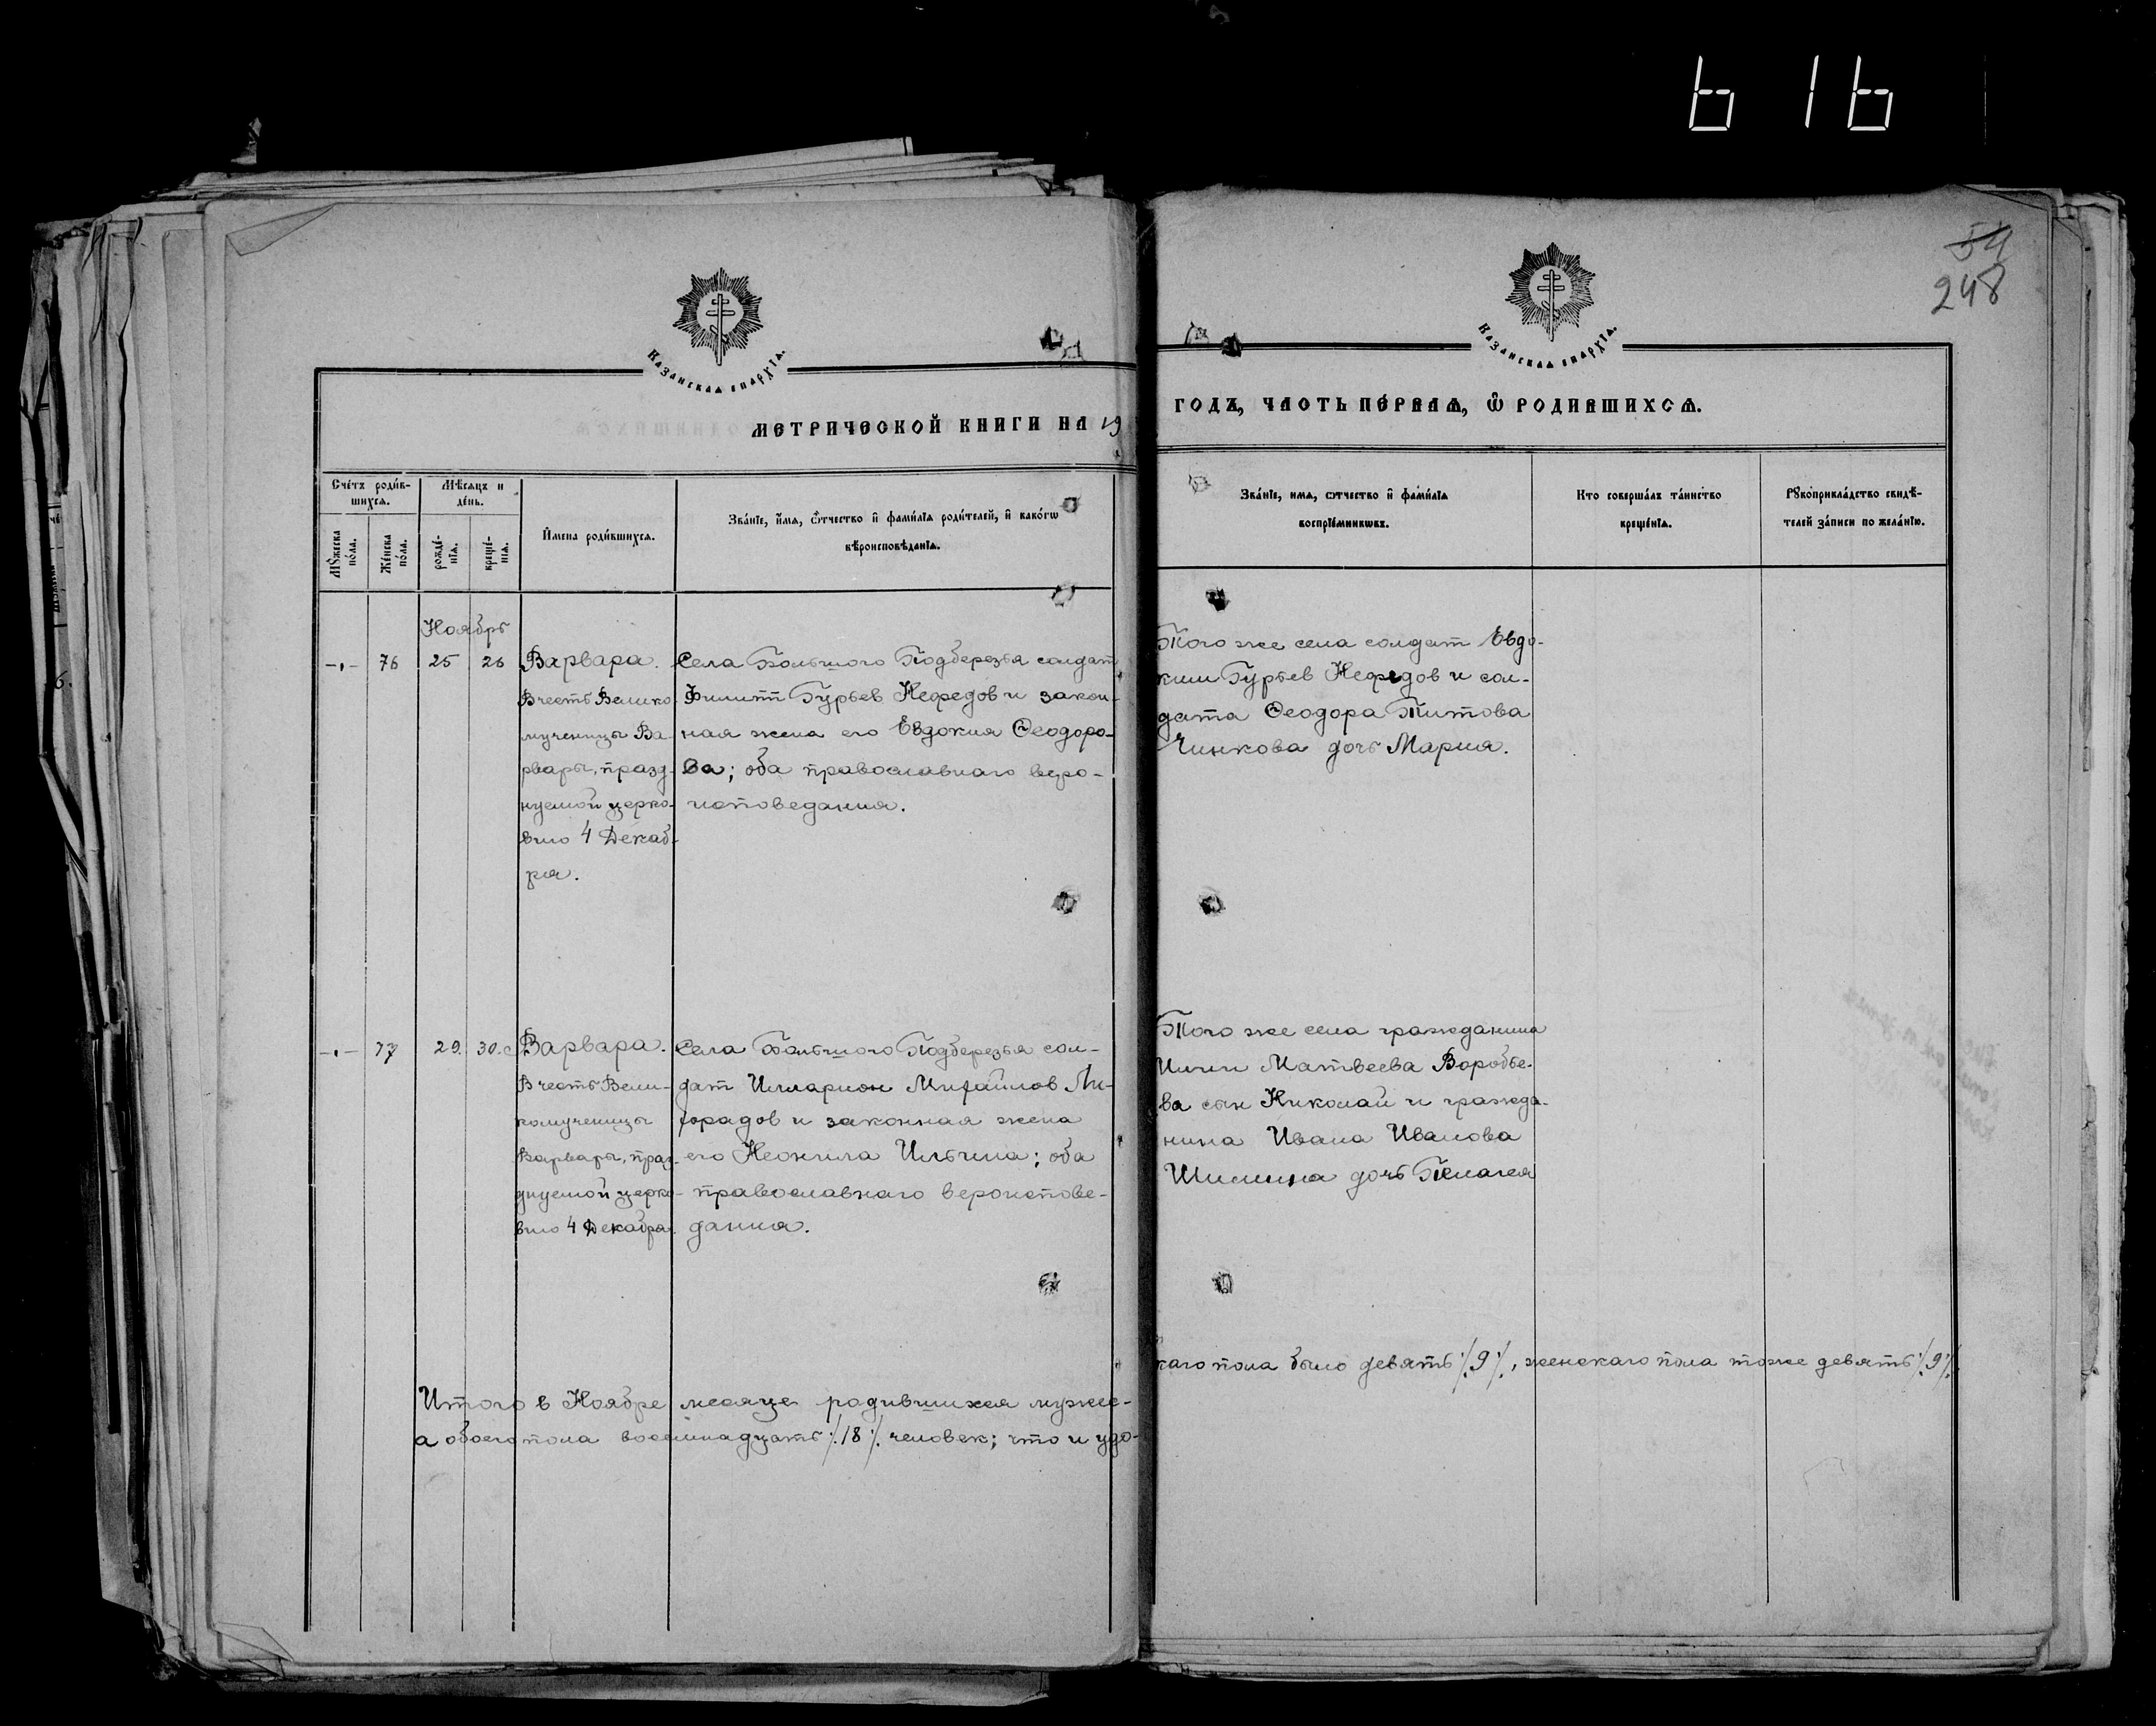 616
54
248
Казанская епархїѧ.
Казанская епархїѧ.
МЕТРИЧЕСКОЙ КНИГИ НА 19
ГОДЪ, ЧАСТЬ ПЕ́РВАѦ, Ѿ РОДИВШИХСѦ.
Сче́тъ роди́в-
шихсѧ.
Мꙋ́жеска
по́ла.
Же́нска
по́ла.
Мѣ́сѧцъ и
де́нь.
рожде́-
нїѧ.
креще́-
нїѧ.
И҆мена роди́вшихсѧ.
Зва́нїе, и҆́мѧ, ѻ҆́тчество и҆ фами́лїѧ роди́телей, и҆ како́гѡ
вѣроисповѣ́данїѧ.
Зва́нїе, имѧ, ѻтчество и҆ фами́лїѧ
воспрїе́мникѡвъ.
Кто соверша́лъ та́инство
креще́нїѧ.
Рꙋкоприкла́дство свидѣ́-
телей за́писи по жела́нїю.
Ноябрь
-"- 76 25 26 Варвара.
В честь Велико
мученицы Ва-
рвары, празд-
нуемой церко-
вию 4 Декаб-
ря.
Села Большого Подберезья солдат
Филипп Гурьев Нефедов и закон-
ная жена его Евдокия Феодоро-
ва; оба православнаго веро-
исповедания.
Того же села солдат Евдо-
ким Гурьев Нефедов и сол-
дата Феодора Титова
Чинкова дочь Мария.
-"- 77 29. 30. Варвара.
В честь Вели-
комученицы
Варвары, праз-
днуемой церко-
вию 4 Декабря.
Села Большого Подберезья сол-
дат Илларион Михайлов Ли-
форадов и законная жена
его Неонила Ильина; оба
православнаго вероиспове-
дания.
Того же села гражданина
Ильи Матвеева Воробье-
ва сын Николай и гражда-
нина Ивана Иванова
Шилина дочь Пелагея
Итого в Ноябре месяце родившихся мужес-
каго пола было девять /9/, женскаго пола тоже девять /9/
а обоего пола восемнадцать /18/ человек; что и удо-